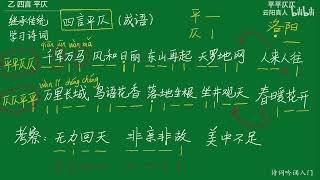 乙 四言 平仄
平平仄仄
云阳真人
bilibili
继承传统
学习诗词
四言平仄(成语)
平 —
仄 |
洛阳
qiān jūn wàn mǎ
平平仄仄 千军万马 风和日丽 东山再起 天罗地网 人来人往
wàn lǐ cháng chéng
仄仄平平 万里长城 鸟语花香 落地生根 坐井观天 春暖花开
考察: 无力回天 非亲非故 美中不足
诗词吟诵入门